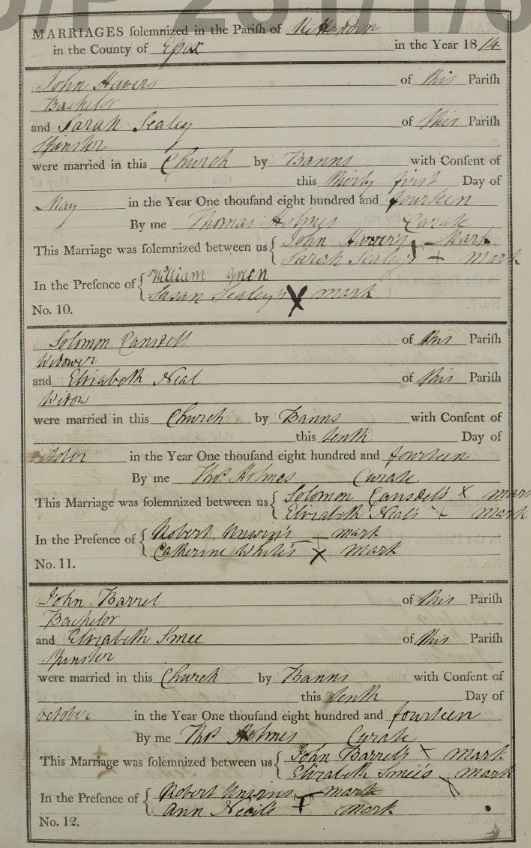 MARRIAGES solemnized in the Parish of
in the County of Essex in the Year 1814
John Havers of this Parish
Bachelor
and Sarah Sealey of this Parish
Spinster
were married in this Church by Banns with Consent of
this thirty first Day of
May in the Year One thousand eight hundred and fourteen
By me Thomas Holmes Curate
This Marriage was solemnized between us { John Havers's + Mark
Sarah Sealey's + Mark
In the Presence of { William Green
Susan Sealey's X mark
No. 10.
Solomon Cansdell of this Parish
Widower
and Elizabeth Neal of this Parish
Widow
were married in this Church by Banns with Consent of
this tenth Day of
October in the Year One thousand eight hundred and fourteen
By me Thos. Holmes Curate
This Marriage was solemnized between us { Solomon Cansdell's X mark
Elizabeth Neal's X mark
In the Presence of { Robert Unwin's mark
Catherine White's X mark
No. 11.
John Barrel of this Parish
Bachelor
and Elizabeth Smee of this Parish
Spinster
were married in this Church by Banns with Consent of
this tenth Day of
October in the Year One thousand eight hundred and fourteen
By me Thos. Holmes Curate
This Marriage was solemnized between us { John Barrel's X mark
Elizabeth Smee's mark
In the Presence of { Robert Unwins mark
Ann Neale + mark
No. 12.